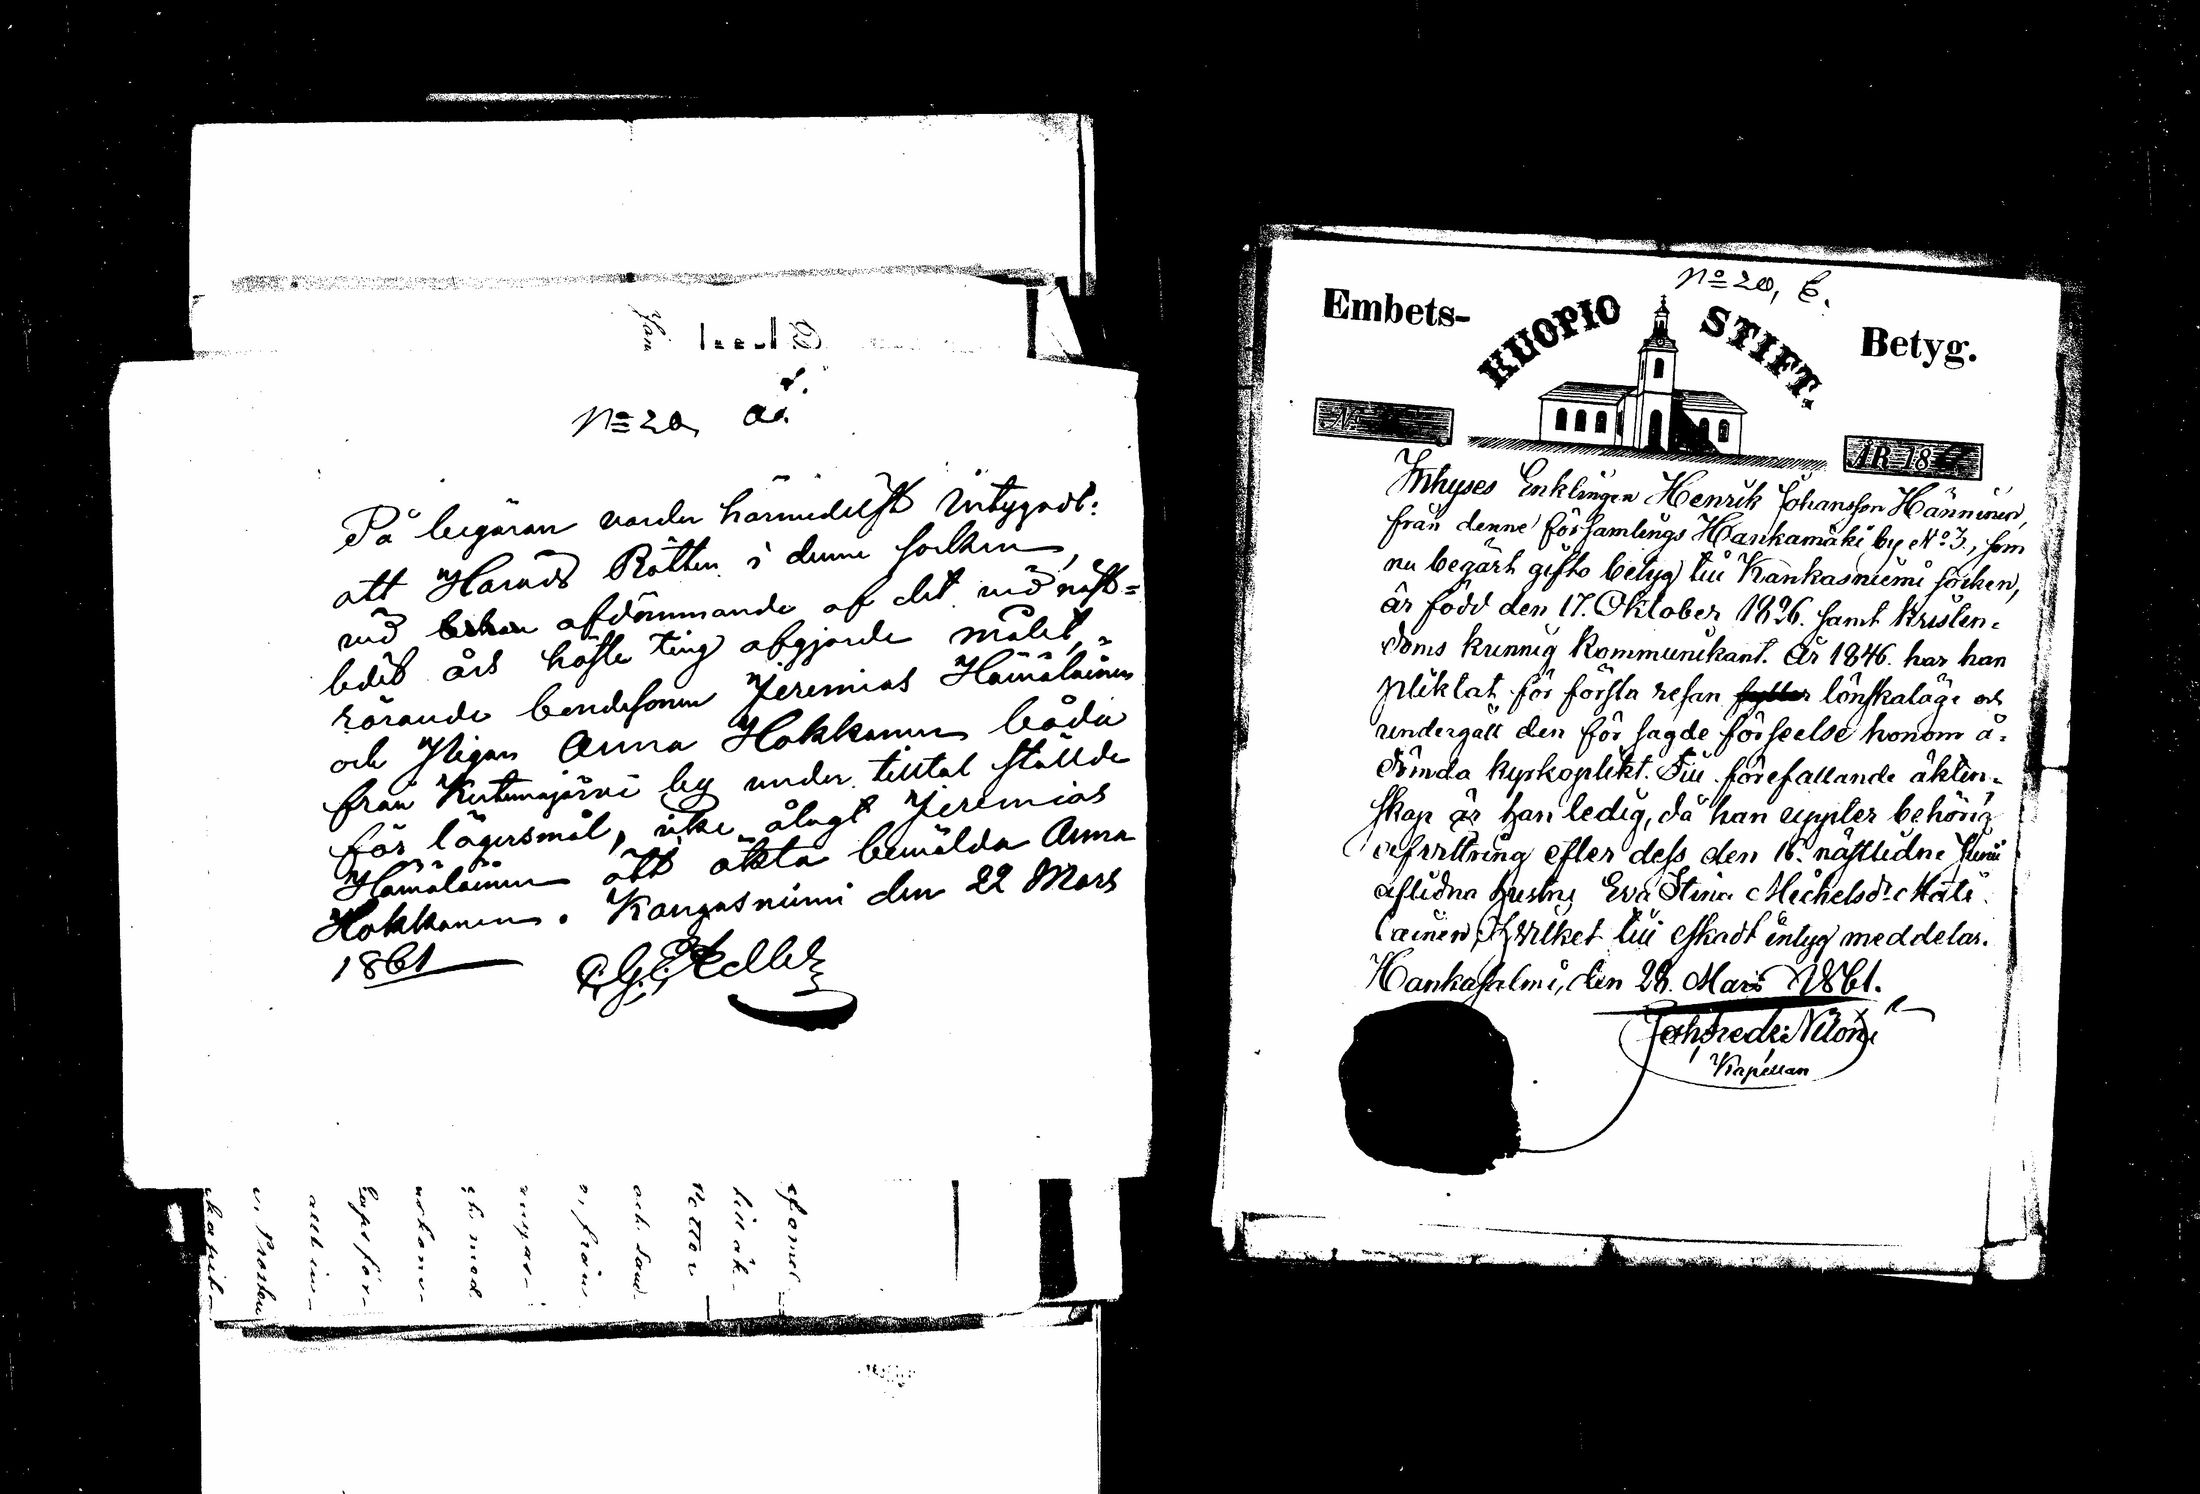 No 20, a.
På begäran varder härmedelst intygadt:
att Härads Rätten i denne socken,
vid afdömmande af det vid näst-
ledit års höste ting afgjorde målet,
rörande bondesonen Jeremias Hämäläinen
och Pigan Anna Hokkanen båda
från Kutemajärvi by under tilltal ställde
för lägersmål, icke ålagt Jeremias
Hämäläinen att äkta bemälda Anna
Hokkanen. Kangasniemi den 22 Mars
1861
spanet
till äk-
Petter
och Sam
n, från
ght med
nokane-
Laps för-
attl in-
v. Prosten
kapit-
No 20, b.
Embets-
KUOPIO STIFT.
Betyg.
N
ÅR 18
Inhyses Enklingen Henrik Johansson Hänninen,
från denne församlings Hankamäki by No 3, som
nu begärt gifto betyg till Kankasniemi socken,
är född den 17. Oktober 1826. samt kristen-
doms kunnig kommunikant. År 1846. har han
pliktat för första resan lönskaläge och
undergått den för sagde förseelse honom å-
dömda kyrkoplikt. Till förefallande äkten-
skap är han ledig, då han uppter behörig
afvittring efter dess den 16. nästledne Junii
aflidna hustru Eva Stina Michelsdr Mati-
lainen, Hvilket till äskadt intyg meddelas.
Hankasalmi, den 28. Mars 1861.
Joh Fredr Nilon
Kapellan